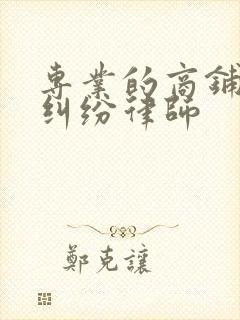 專業的商鋪
糾紛律師
鄭克讓